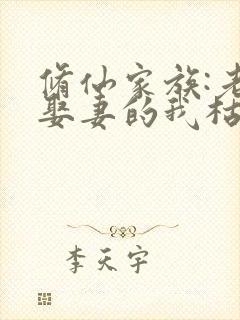 脩仙家族:老
娶妻的我枯
李天宇